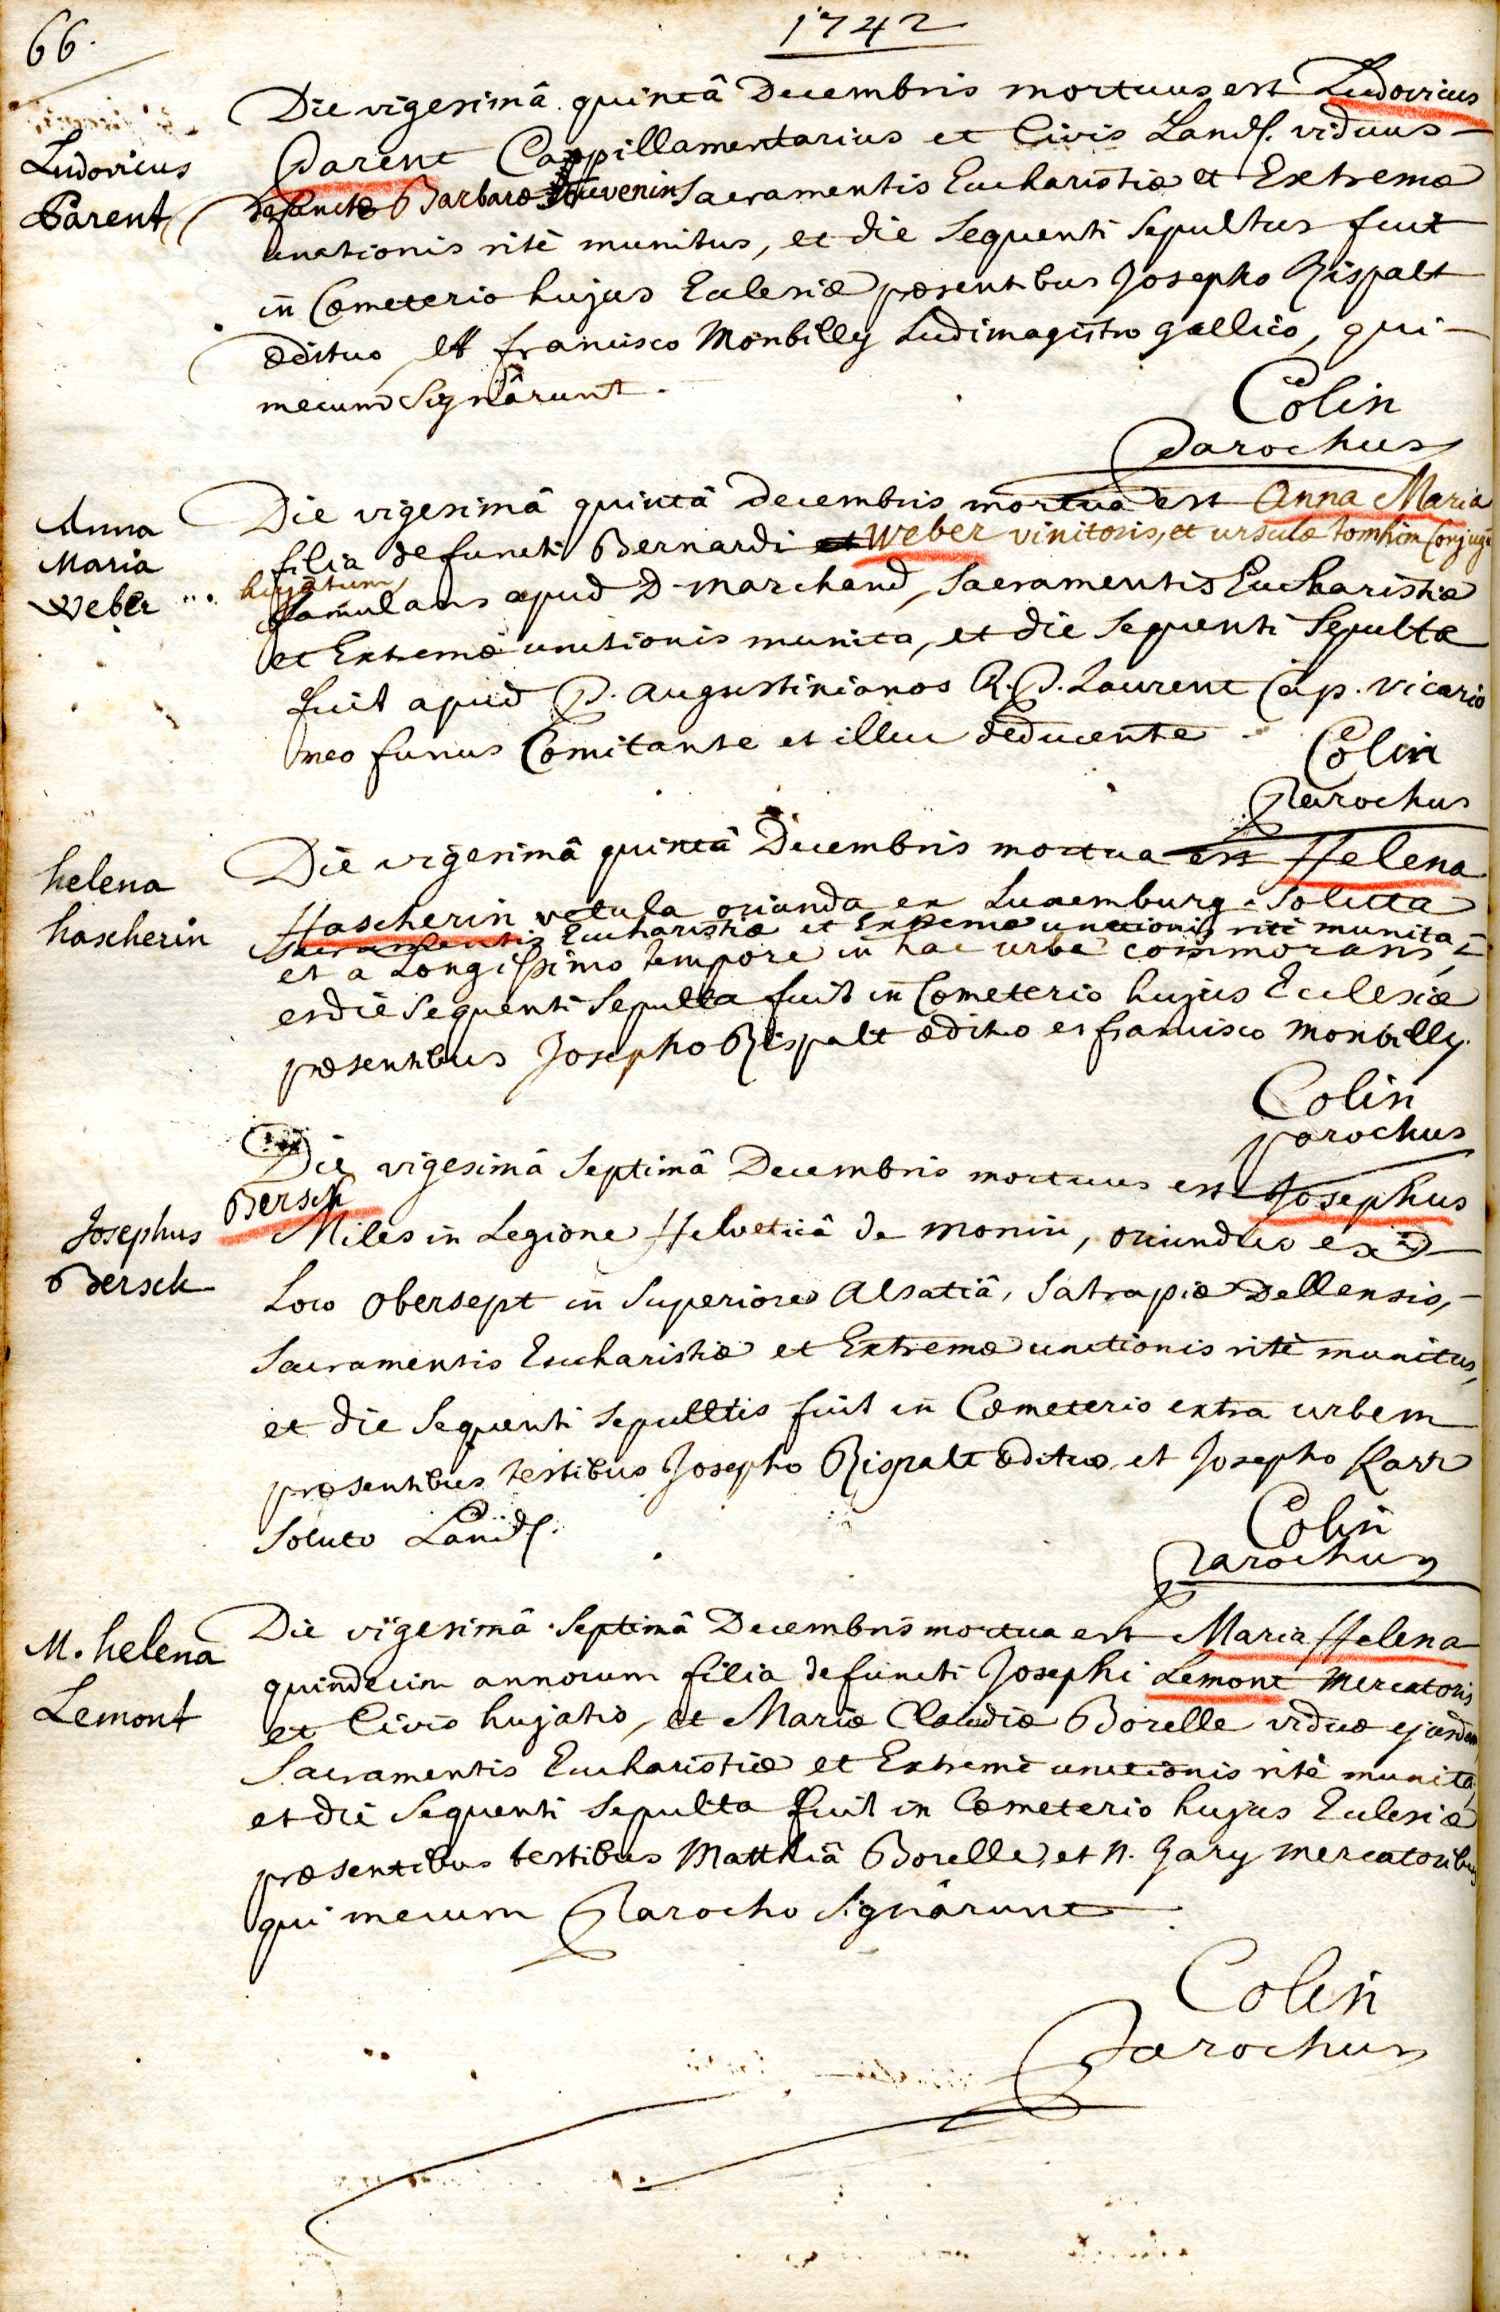 66.
1742
Ludovicus
Parent
Die vigesimâ quintâ Decembris mortuus est Ludovicus
Parent Cappillamentarius et Civis Land. viduus
defunctæ Barbaræ Thuvenin Sacramentis Eucharistiæ et Extremæ
unctionis ritè munitus, et die sequenti sepultus fuit
in Cœmeterio hujus Eclesiæ præsentibus Josepho Rispalt
ædituo et francisco Monbilly Ludimagistro gallico, qui
mecum signârunt.
Colin
Parochus
Anna
Maria
Weber
Die vigesimâ quintâ decembris mortua est Anna Maria
filia defuncti Bernardi Weber vinitoris, et ursulæ tomhin Conjugū
hujatum,
famulans apud D. marchand, Sacramentis Eucharistiæ
et Extremæ unctionis munita, et die sequenti sepulta
fuit apud P. Augustinianos R. P. Laurent Cap. vicario
meo funus Comitante et illuc deducente
Colin
Parochus
helena
hascherin
Die vigesimâ quintâ Decembris mortua est Helena
Hascherin vetula oriunda ex Luxemburg soluta
Sacramentis Eucharistiæ et Extremæ unctionis ritè munita
et a Longissimo tempore in hac urbe commorans,
et die sequenti sepulta fuit in Cœmeterio hujus Eclesiæ
præsentibus Josepho Rispalt ædituo et francisco monbilly.
Colin
parochus
Josephus
Bersck
Die vigesimâ septimâ Decembris mortuus est Josephus
Bersck
Miles in Legione Helveticâ de monin, oriundus ex
Loco Obersept in superiore Alsatiâ, Satrapiæ Dellensis,
Sacramentis Eucharistiæ et Extremæ unctionis ritè munitus,
et die sequenti sepultus fuit in Cœmeterio extra urbem
præsentibus testibus Josepho Rispalt ædituo, et Josepho Karr
soluto Land.
Colin
Parochus
M. helena
Lemont
Die vigesimâ septimâ Decembris mortua est Maria Helena
quindecim annorum filia defuncti Josephi Lemont mercatoris
et Civis hujatis, et Mariæ Claudiæ Borelle viduæ ejusdem
Sacramentis Eucharistiæ et Extremæ unctionis ritè munita,
et die sequenti sepulta fuit in Cœmeterio hujus Eclesiæ
præsentibus testibus Matthiâ Borelle, et N. Gary mercatoribus
qui mecum Parocho signârunt
Colin
Parochus